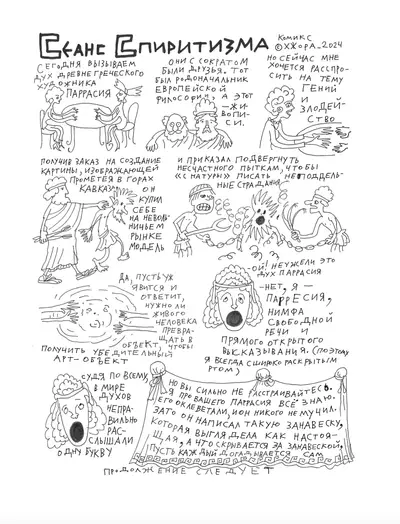 Сеанс Спиритизма
Комикс
©Хжора_2024
Сегодня вызываем
дух древнегреческого
художника
Паррасия
Они с Сократом
были друзья. Тот
был родоначальник
европейской
философии, а этот
– жи-
вопи-
си.
Но сейчас мне
хочется расспро-
сить на тему
Гений
и
Злодей-
ство
Получив заказ на создание
картины, изображающей
Прометея в горах
Кавказа,
он
купил
себе
на неволь-
ничьем
рынке
модель
и приказал подвергнуть
несчастного пыткам, чтобы
«с натуры» писать неподдель-
ные страдания
Да, пусть уж
явится и
ответит,
нужно ли
живого
человека
превра-
щать в
объект, чтобы
получить убедительный
арт-объект
Ой! Неужели это
дух Паррасия
– Нет, я –
Парресия,
нимфа
свободной
речи и
прямого открытого
высказывания. (Поэтому
я всегда с широко раскрытым
ртом)
Судя по всему,
в мире
духов
непра-
вильно
рас-
слышали
одну букву
Но вы сильно не расстраивайтесь.
Я про вашего Паррасия всё знаю.
Его оклеветали, и он никого не мучил.
Зато он написал такую занавеску,
которая выглядела как настоя-
щая, а что скрывается за занавеской,
пусть каждый догадывается сам
Продолжение следует